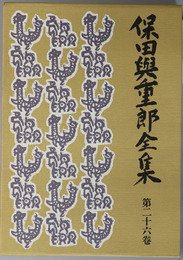 保田與重郎全集
第二十六卷